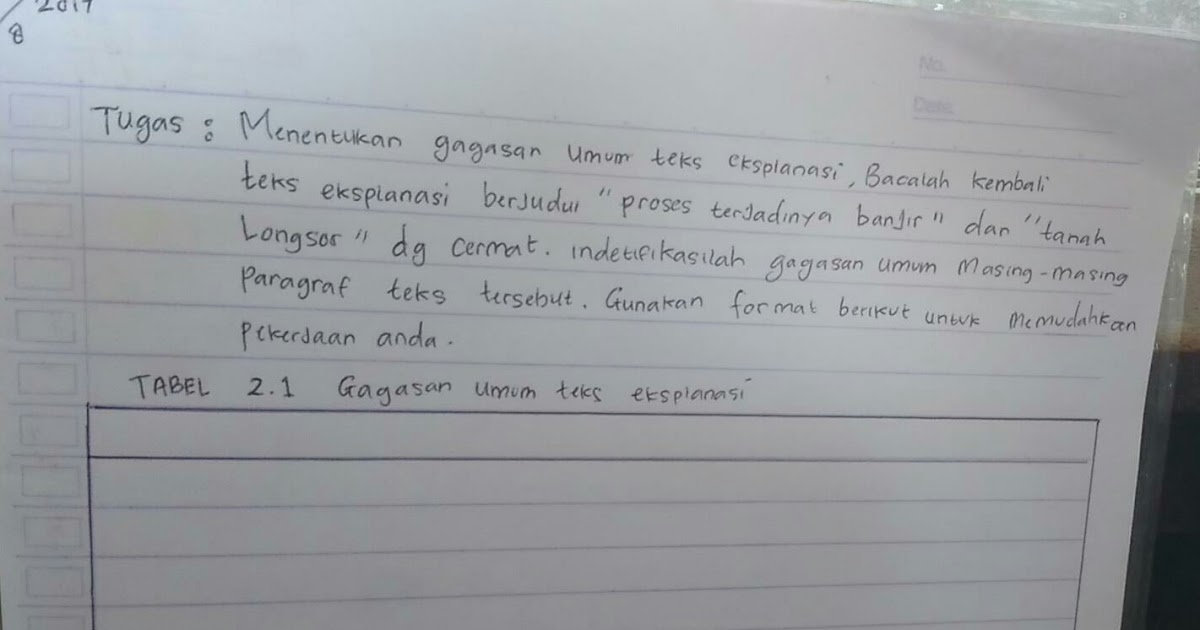 2017
8
No.
Date.
Tugas : Menentukan gagasan umum teks eksplanasi, Bacalah kembali
teks eksplanasi berjudul "proses terjadinya banjir" dan "tanah
Longsor" dg cermat. indetifikasilah gagasan umum masing-masing
Paragraf teks tersebut. Gunakan format berikut untuk memudahkan
pekerjaan anda.
TABEL 2.1 Gagasan umum teks eksplanasi